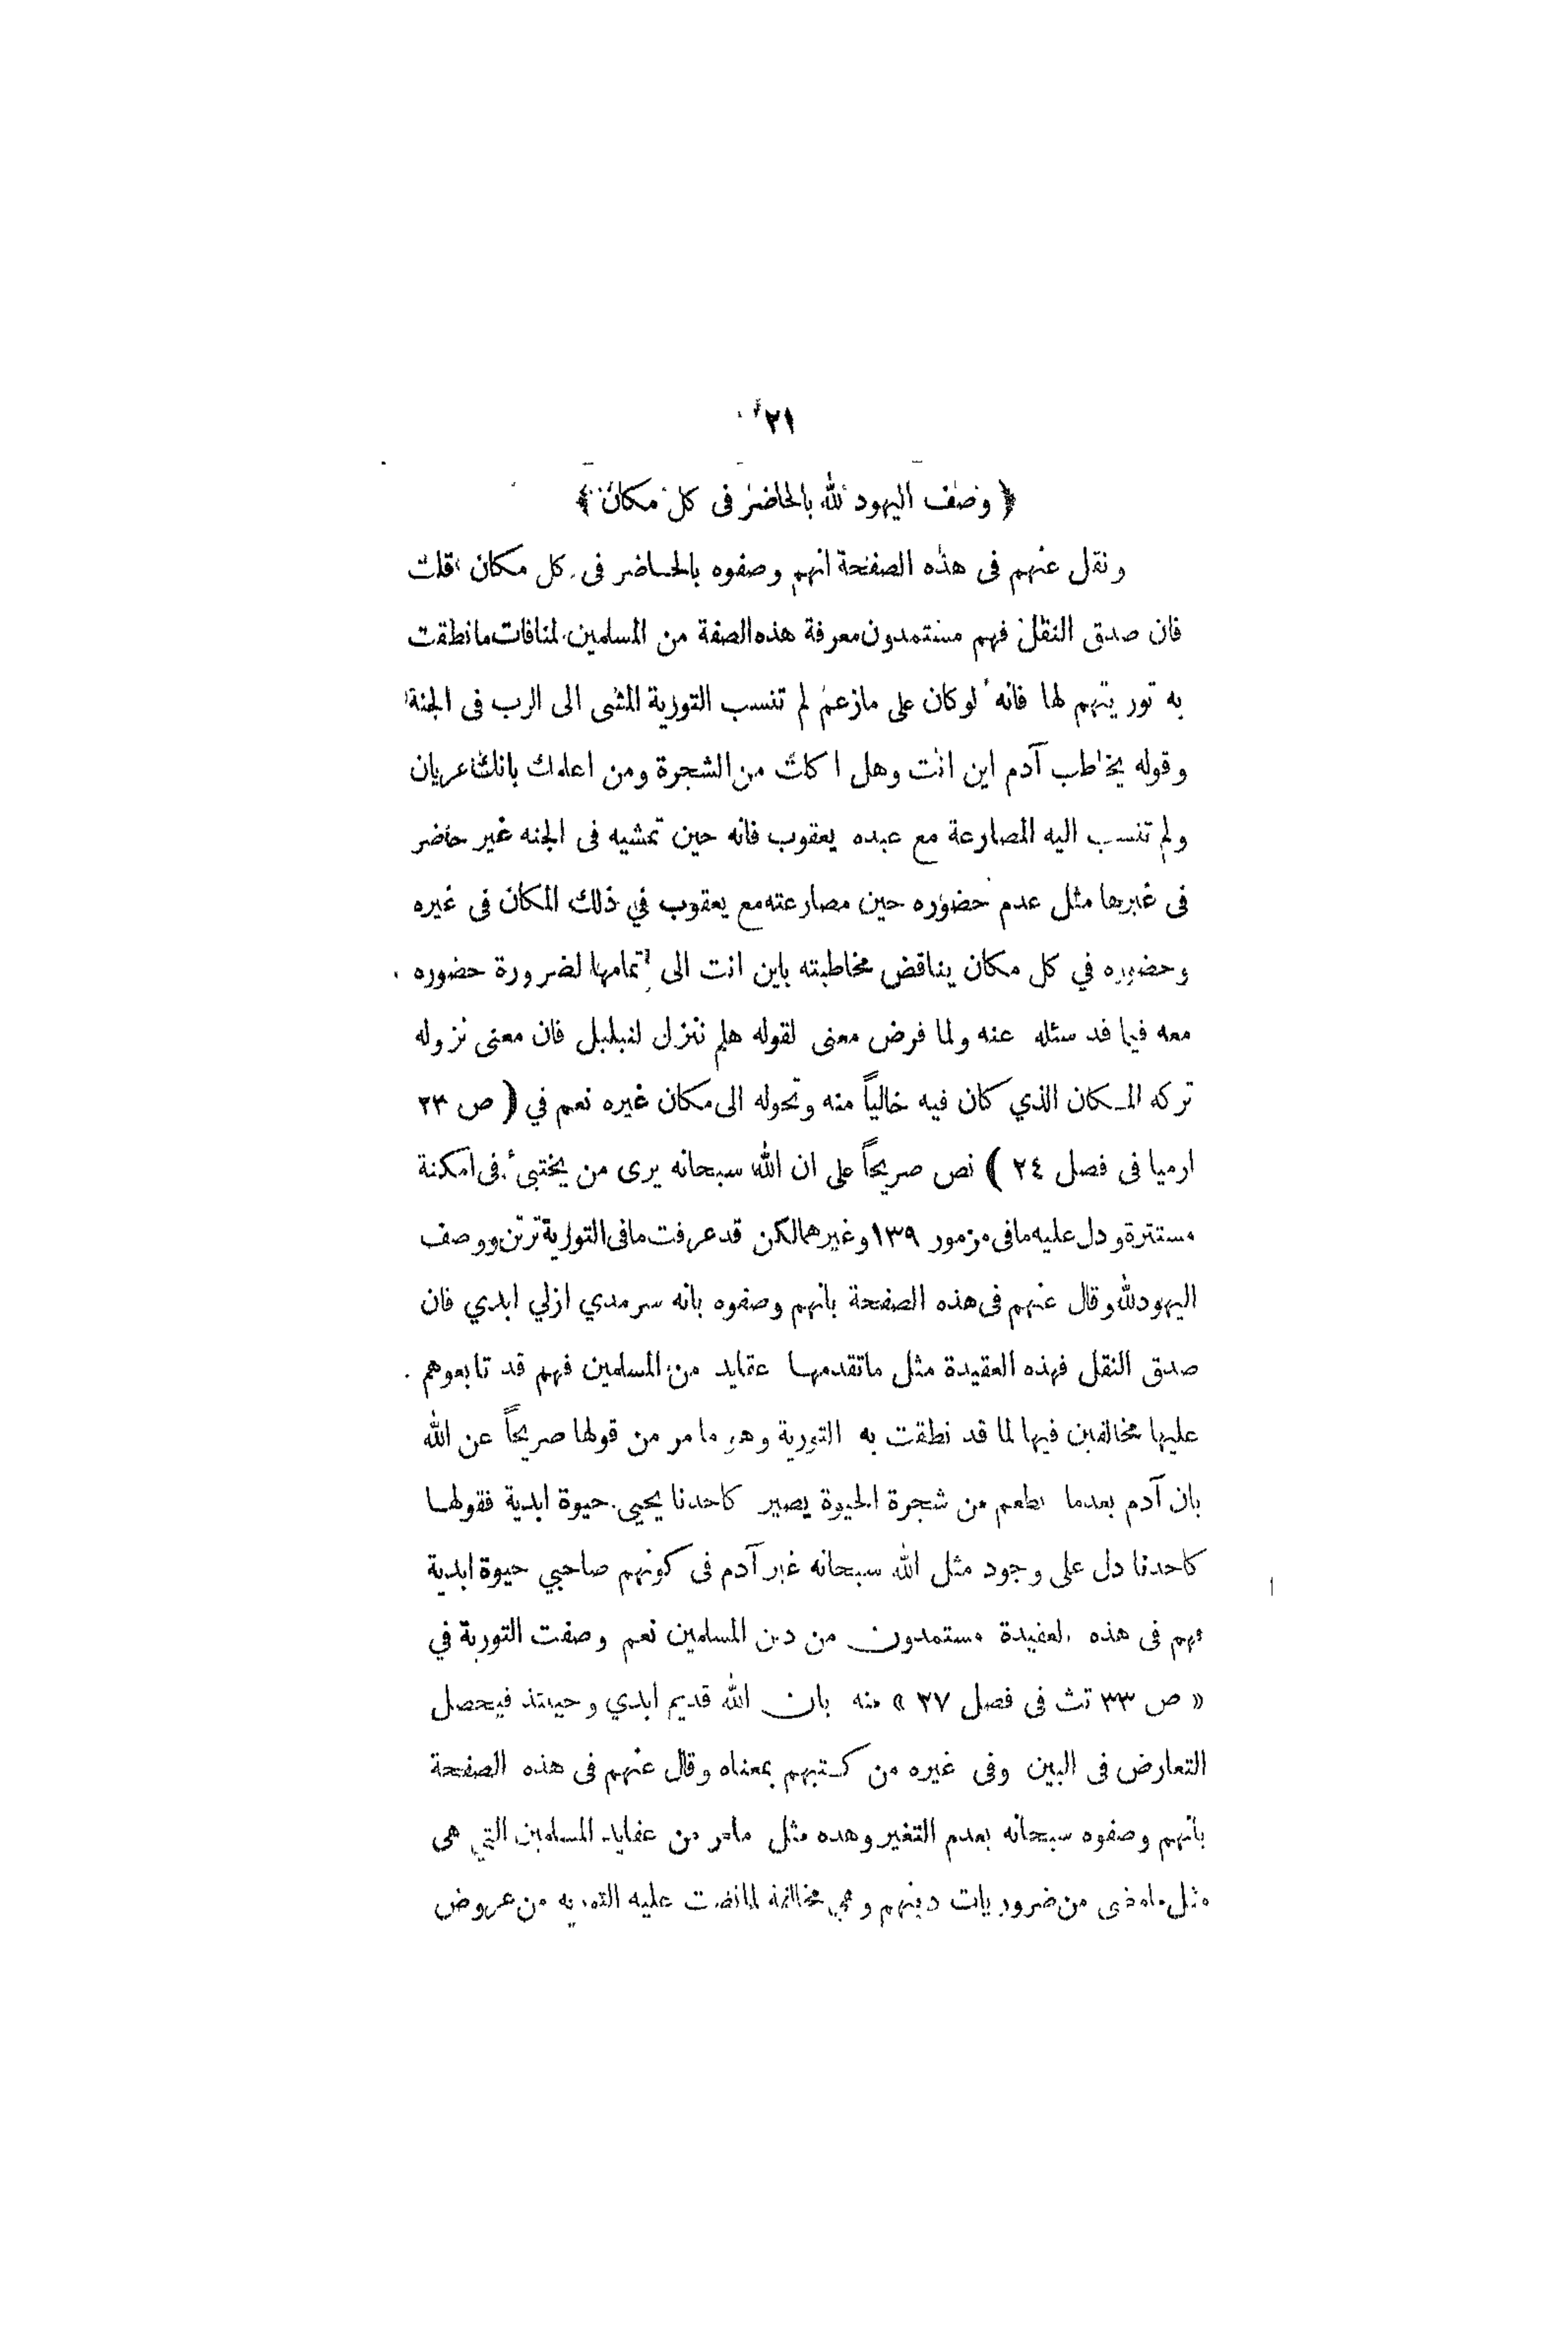 ٢١
﴿ وصف اليهود لله بالحاضر فى كل مكان ﴾
ونقل عنهم فى هذه الصفحة انهم وصفوه بالحاضر فى كل مكان قلت
فان صدق النقل فهم مستمدون معرفة هذه الصفة من المسلمين لمنافات ما نطقت
به توريتهم لها فانه لو كان على مازعم لم تنسب التورية المشى الى الرب فى الجنة
وقوله يخاطب آدم اين انت وهل اكلت من الشجرة ومن اعلمك بانك عريان
ولم تنسب اليه المصارعة مع عبده يعقوب فانه حين تمشيه فى الجنه غير حاضر
فى غيرها مثل عدم حضوره حين مصارعته مع يعقوب في ذلك المكان فى غيره
وحضوره في كل مكان يناقض مخاطبته باين انت الى تمامها لضرورة حضوره
معه فيما قد سئله عنه ولما فرض معنى لقوله هلم ننزل لنبلبل فان معنى نزوله
تركه المكان الذي كان فيه خالياً منه وتحوله الى مكان غيره نعم في ( ص ٢٣
ارميا فى فصل ٢٤ ) نص صريحاً على ان الله سبحانه يرى من يختبىء فى امكنة
مستترة ودل عليه مافى مزمور ١٣٩ وغيرهما لكن قد عرفت مافى التورية ووصف
اليهود لله وقال عنهم فى هذه الصفحة بانهم وصفوه بانه سرمدي ازلي ابدي فان
صدق النقل فهذه العقيدة مثل ماتقدمها عقايد من المسلمين فهم قد تابعوهم
عليها مخالفين فيها لما قد نطقت به التورية وهو ما مر من قولها صريحاً عن الله
بان آدم بعدما يطعم من شجرة الحيوة يصير كاحدنا يحيى حيوة ابدية فقولها
كاحدنا دل على وجود مثل الله سبحانه غير آدم فى كونهم صاحبي حيوة ابدية
فهم فى هذه العقيدة مستمدون من دين المسلمين نعم وصفت التورية في
« ص ٣٣ تث فى فصل ٢٧ » منه بان الله قديم ابدي وحينئذ فيحصل
التعارض فى البين وفى غيره من كتبهم بمعناه وقال عنهم فى هذه الصفحة
بانهم وصفوه سبحانه بعدم التغير وهذه مثل مامر من عقايد المسلمين التي هى
مثل مامضى من ضروريات دينهم وهي مخالفة لما نصت عليه التورية من عروض